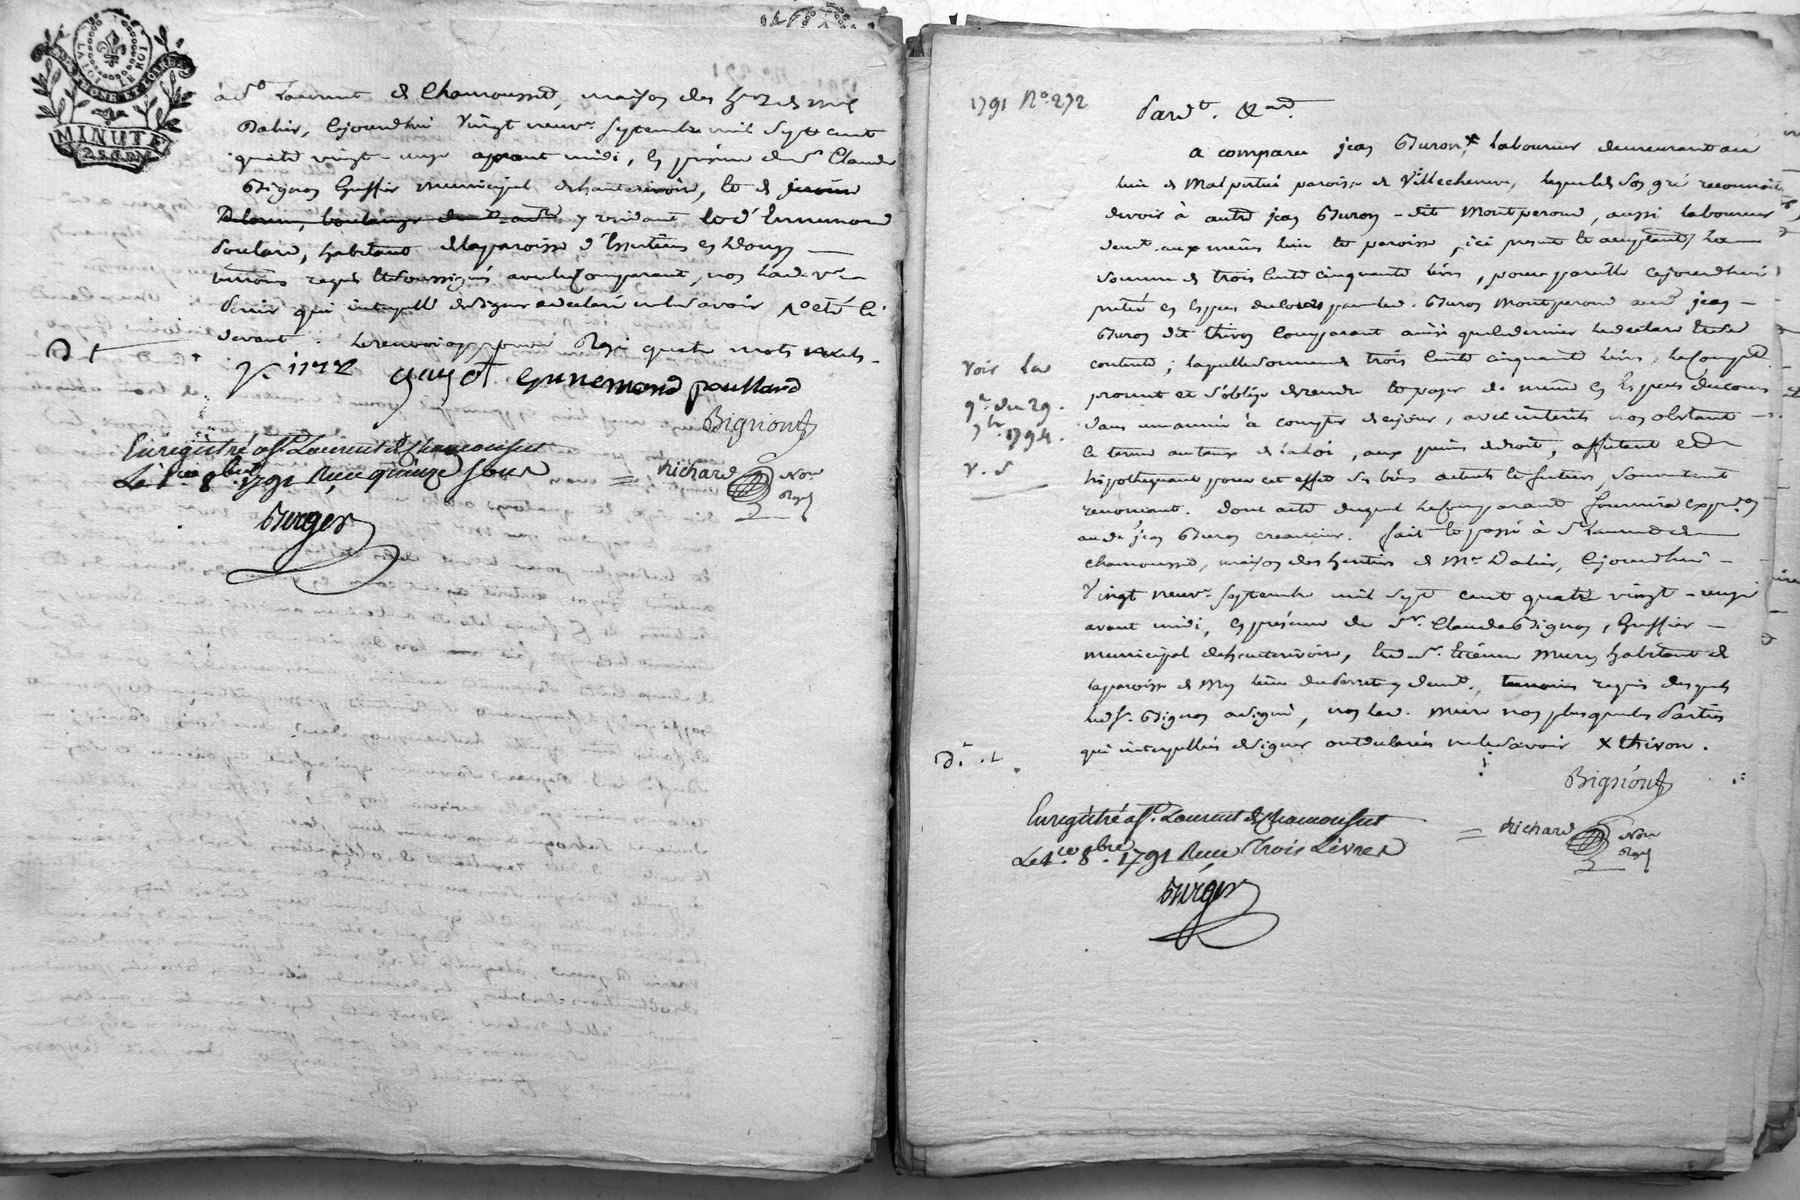 LA LOI LE ROI
MINUTE
2 S. 6 D.
à St Laurent de Chamousset, maison des her. de mr
Dalier, cejourdhui vingt neuv. septembre mil sept cent
quatre vingt-onze avant midi, en présence de sr Claude
Bignon huissier municipal de hauterivoire, et de
boulanger y résidant et d'Ennemond
Poulard, habitant de la paroisse d'Essertines en Donzy
témoins requis et soussignés avec le comparant, non lad. ve
Denis qui interpellé de signer a déclaré ne le savoir
devant. Le renvoi approuvé Rayé quatre mots nuls.
Gunemond poullard
Bignon
Enregistré a St. Laurent de Chamousset
Le 1er 8bre 1791 Reçu quinze sous
richard Nore
Royal
Burger
1791 No. 272
Pardt. &ard.
a comparu jean Buron × laboureur demeurant au
lieu de Malpertui paroisse de Villecheneve, lequel de son gré reconnoit
devoir à autre jean Buron - dit Montperoud, aussi laboureur
demt. aux mêmes lieu et paroisse, ici present et acceptant la
somme de trois cent cinquante livres, pour pareille cejourdhui
prêtée en espèces du cours par led. Buron Montperoud aud. jean
Buron dit thivon comparant ainsi que le dernier le déclare
contenté; laquelle somme de trois cent cinquante livres, le compt.
promet et s'oblige de rendre et payer de même en espèces du cours
dans une année à compter de ce jour, avec interêts non obstant
le terme au taux de la loi, aux peines de droit, affectant et
hipothequant pour cet effet ses biens actuels et futurs, soumettant
renonçant. Dont acte duquel le comparant fournira expeon
aud. jean Buron creancier. fait et passé à St laurent de
chamousset, maison des heritiers de Mr Dalier, cejourdhui
vingt neuv. septembre mil sept cent quatre vingt-onze
avant midi, en présence de sr. Claude Bignon, huissier
municipal de hauterivoire, et de sr. Etienne Mure habitant de
la paroisse de Mey lieu du Perret y demt., temoins requis desquels
led. sr. Bignon a signé, non led. Mure non plus que les parties
qui interpellés de signer ont déclarés ne le savoir × thivon.
voir la
qce du 29.
7bre 1794.
Bignon
Enregistré a St. Laurent de Chamousset
Le 1er 8bre 1791 Reçu Trois Livres
richard Nore
Royal
Burger